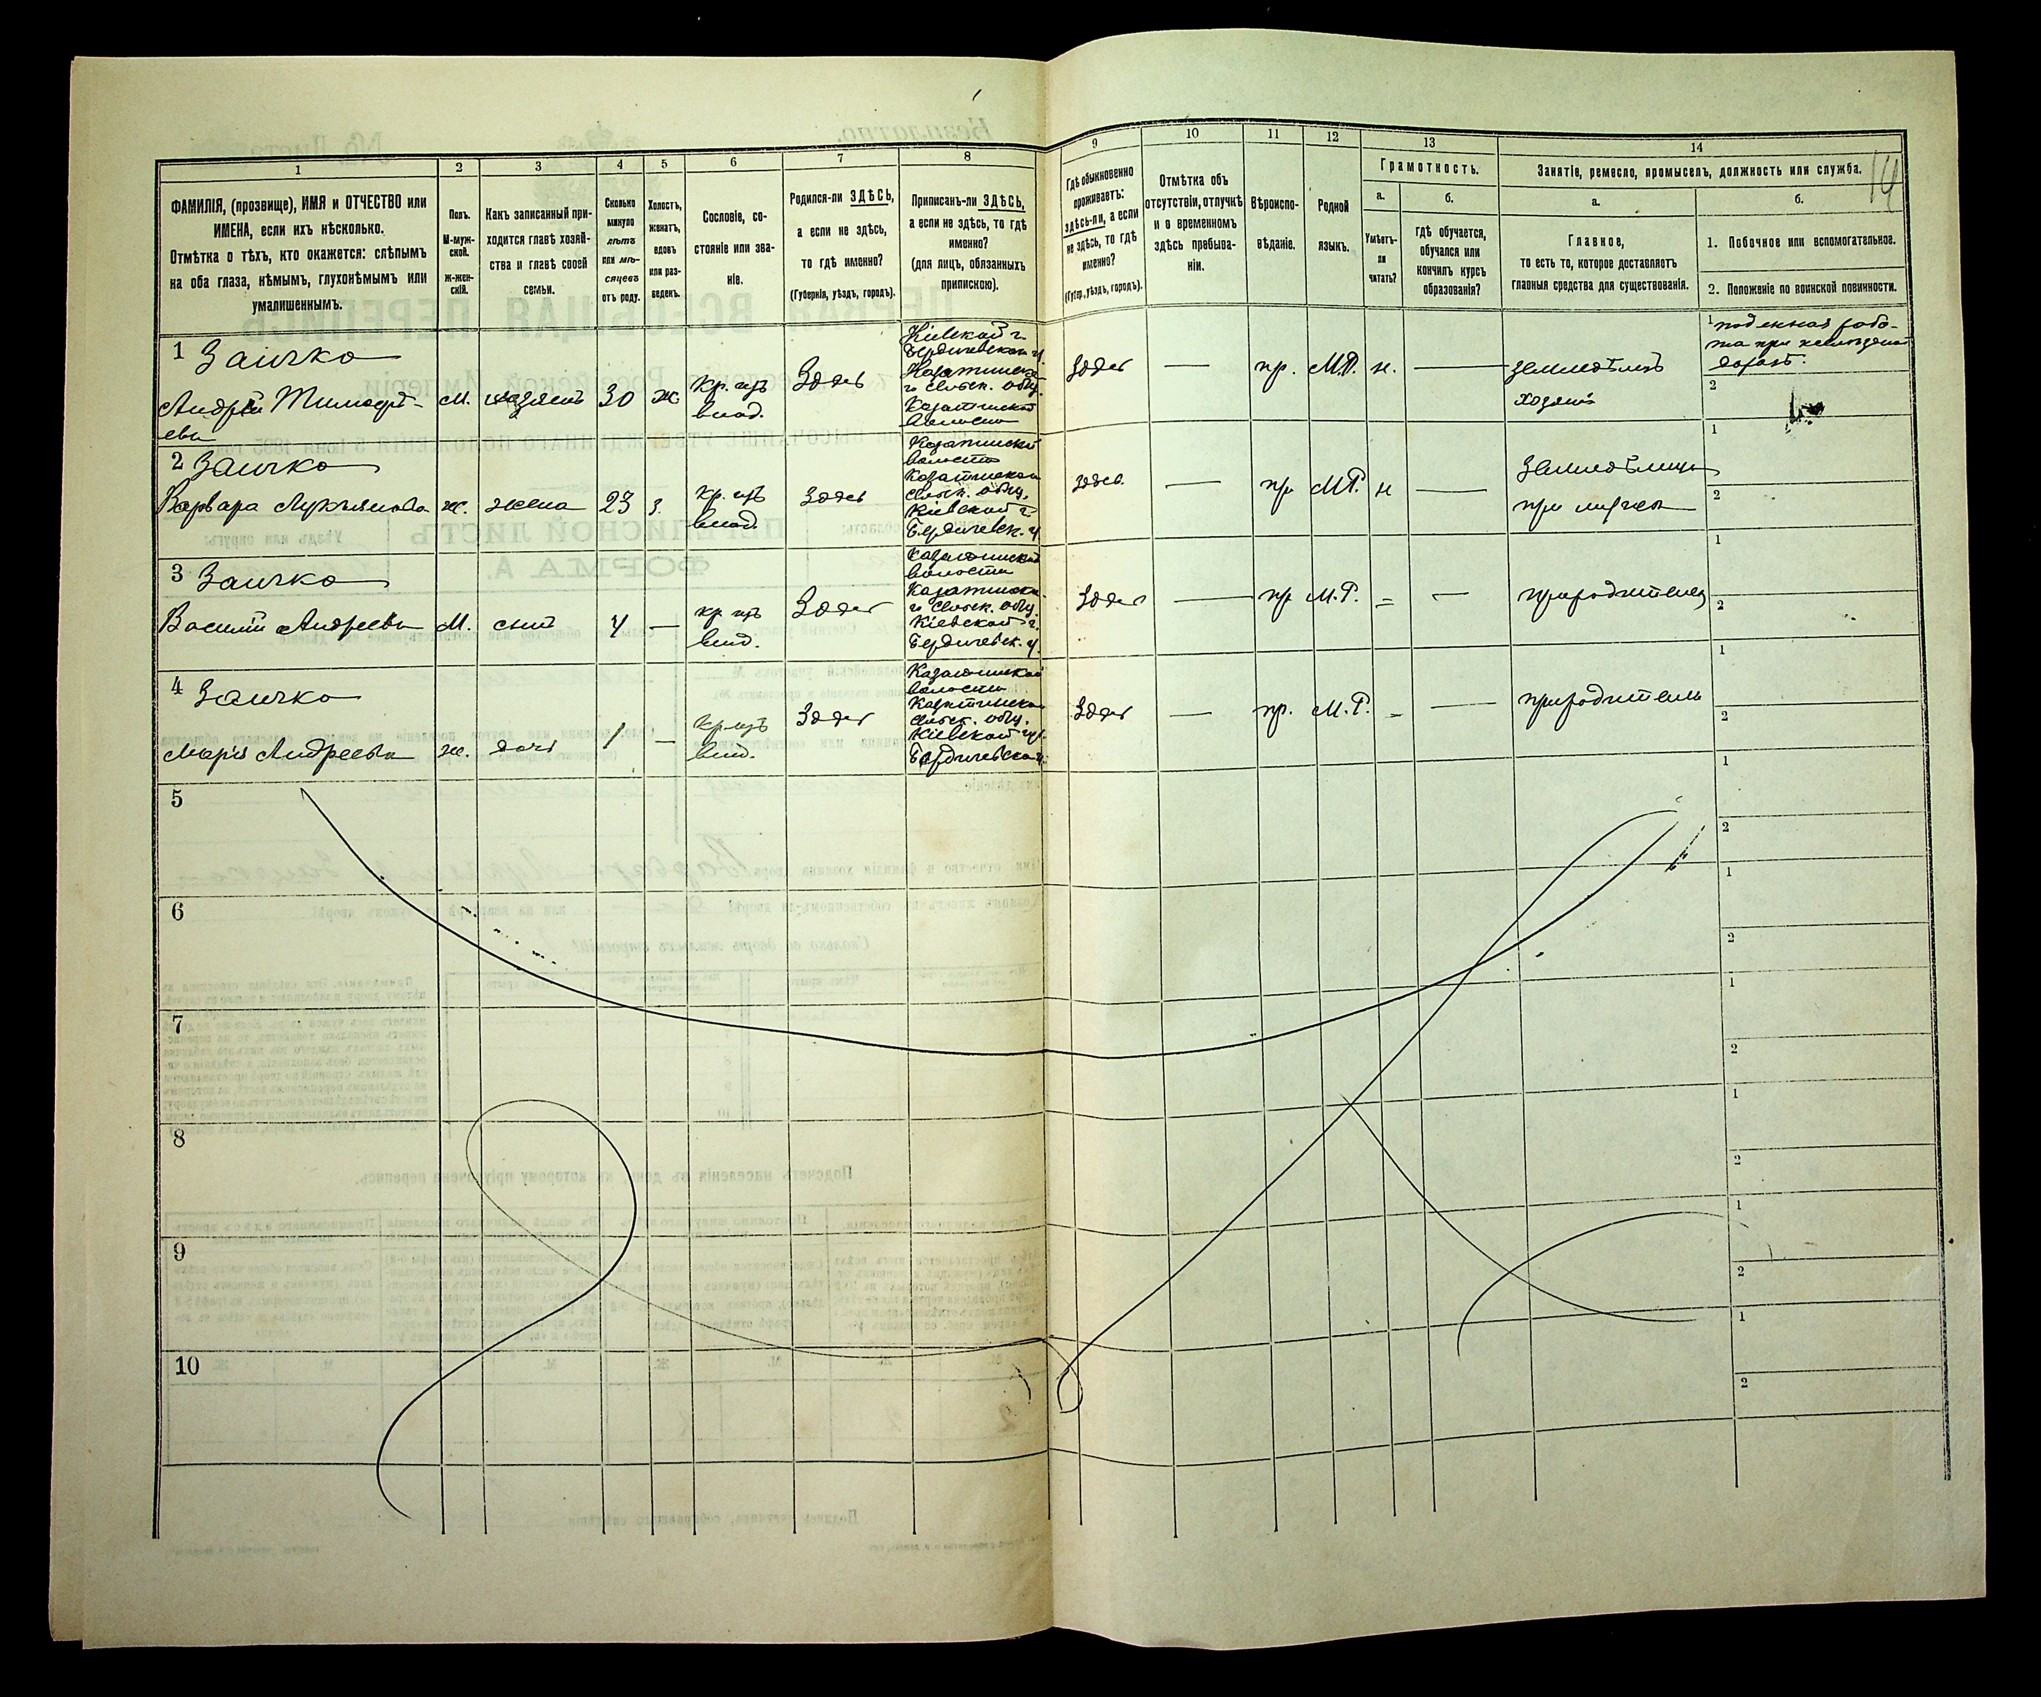 1 2 3 4 5 6 7 8 9 10 11 12 13 14
14
ФАМИЛІЯ, (прозвище), ИМЯ и ОТЧЕСТВО или
ИМЕНА, если ихъ нѣсколько.
Отмѣтка о тѣхъ, кто окажется: слѣпымъ
на оба глаза, нѣмымъ, глухонѣмымъ или
умалишеннымъ.
Полъ.
М-муж-
ской.
Ж-жен-
скій.
Какъ записанный при-
ходится главѣ хозяй-
ства и главѣ своей
семьи.
Сколько
минуло
лѣтъ
или мѣ-
сяцевъ
отъ роду.
Холостъ,
женатъ,
вдовъ
или раз-
веденъ.
Сословіе, со-
стояніе или зва-
ніе.
Родился-ли ЗДѢСЬ,
а если не здѣсь,
то гдѣ именно?
(Губернія, уѣздъ, городъ).
Приписанъ-ли ЗДѢСЬ,
а если не здѣсь, то гдѣ
именно?
(для лицъ, обязанныхъ
припискою).
Гдѣ обыкновенно
проживаетъ:
здѣсь-ли, а если
не здѣсь, то гдѣ
именно?
(Губер., уѣздъ, городъ).
Отмѣтка объ
отсутствіи, отлучкѣ
и о временномъ
здѣсь пребыва-
ніи.
Вѣроиспо-
вѣданіе.
Родной
языкъ.
Грамотность.
а.
Умѣетъ-
ли
читать?
б.
гдѣ обучается,
обучался или
кончилъ курсъ
образованія?
Занятіе, ремесло, промыселъ, должность или служба.
а.
Главное,
то есть то, которое доставляетъ
главныя средства для существованія.
б.
1. Побочное или вспомогательное.
2. Положеніе по воинской повинности.
1 Заичко
Андрей Тимофѣ-
евъ
М. хозяинъ 30 ж. кр. изъ
влад.
Здѣсь
Кіевской г.
Бердичевской у.
Казатинска-
го сельск. общ.
Казатинской
волости
Здѣсь — пр. М.Р. н. — земледѣлецъ
хозяинъ
1 поденная рабо-
та при желѣзной
дорогѣ.
2
2 Заичко
Варвара Лукьянова ж. жена 23 з. кр. изъ
влад.
Здѣсь
Казатинской
волости
Казатинскаго
сельск. общ.
Кіевской г.
Бердичевск. у.
здѣсь — пр М.Р. н — Земледѣлица
при мужѣ
1
2
3 Заичко
Василій Андреевъ М. сынъ 4 — кр. изъ
влад.
Здѣсь
Казатинской
волости
Казатинска-
го сельск. общ.
Кіевской г.
Бердичевск. у.
Здѣсь — пр М.Р. — —
1
2
4 Заичко
Марія Андреева ж. дочь 1 — кр. изъ
влад.
Здѣсь
Казатинской
волости
Казатинска
сельск. общ.
Кіевской губ.
Бердичевской у.
Здѣсь — пр. М.Р. — —
1
2
5
1
2
6
1
2
7
1
2
8
1
2
9
1
2
10
1
2